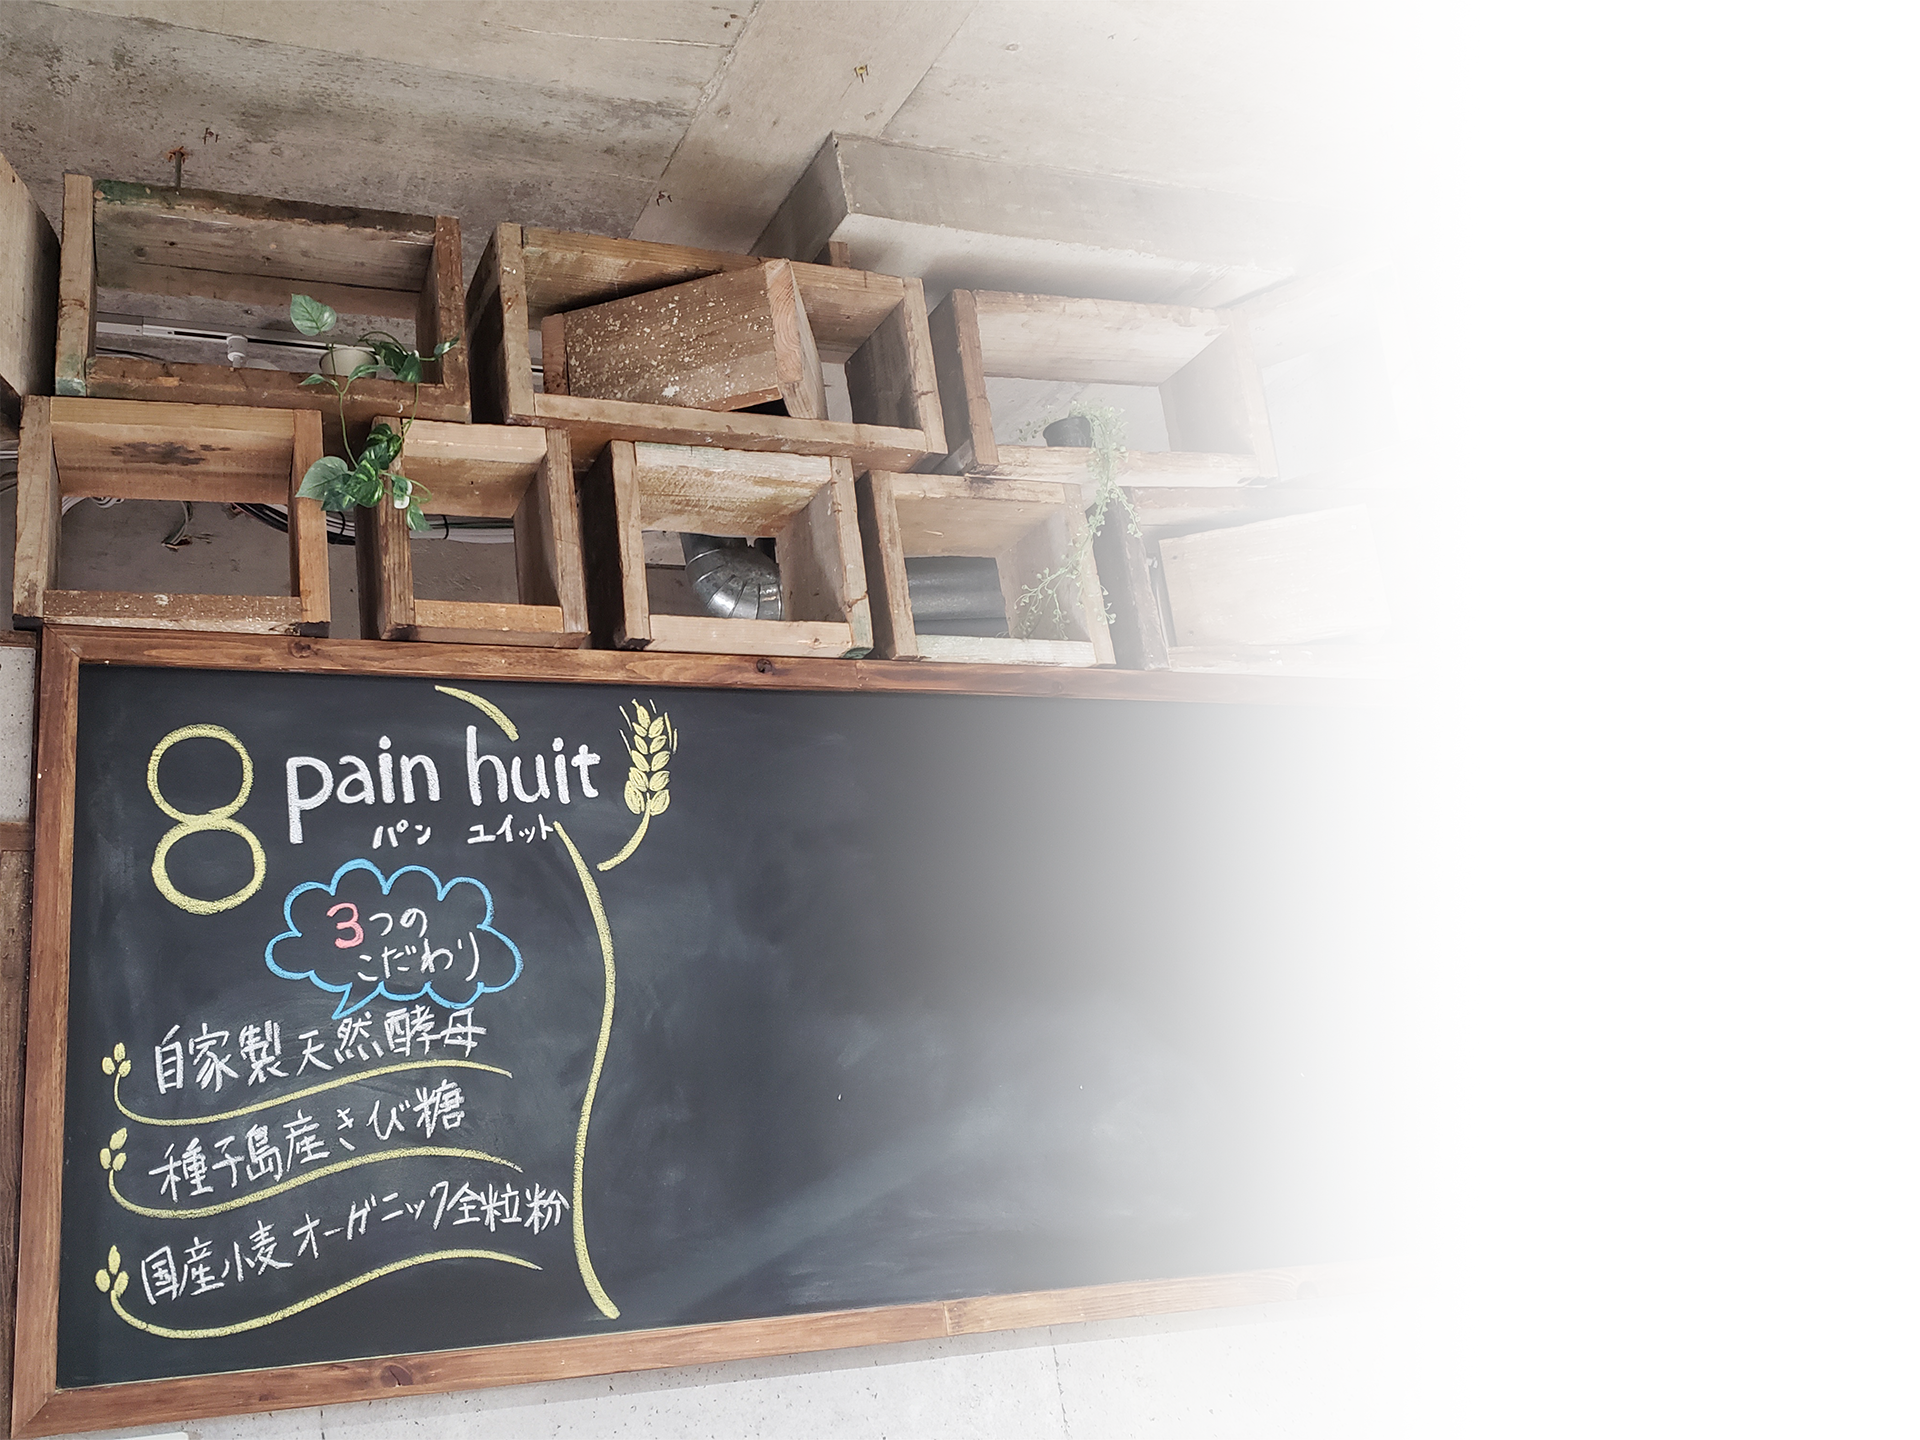 8 pain huit
パン ユイット
3つの
こだわり
自家製天然酵母
種子島産きび糖
国産小麦オーガニック全粒粉